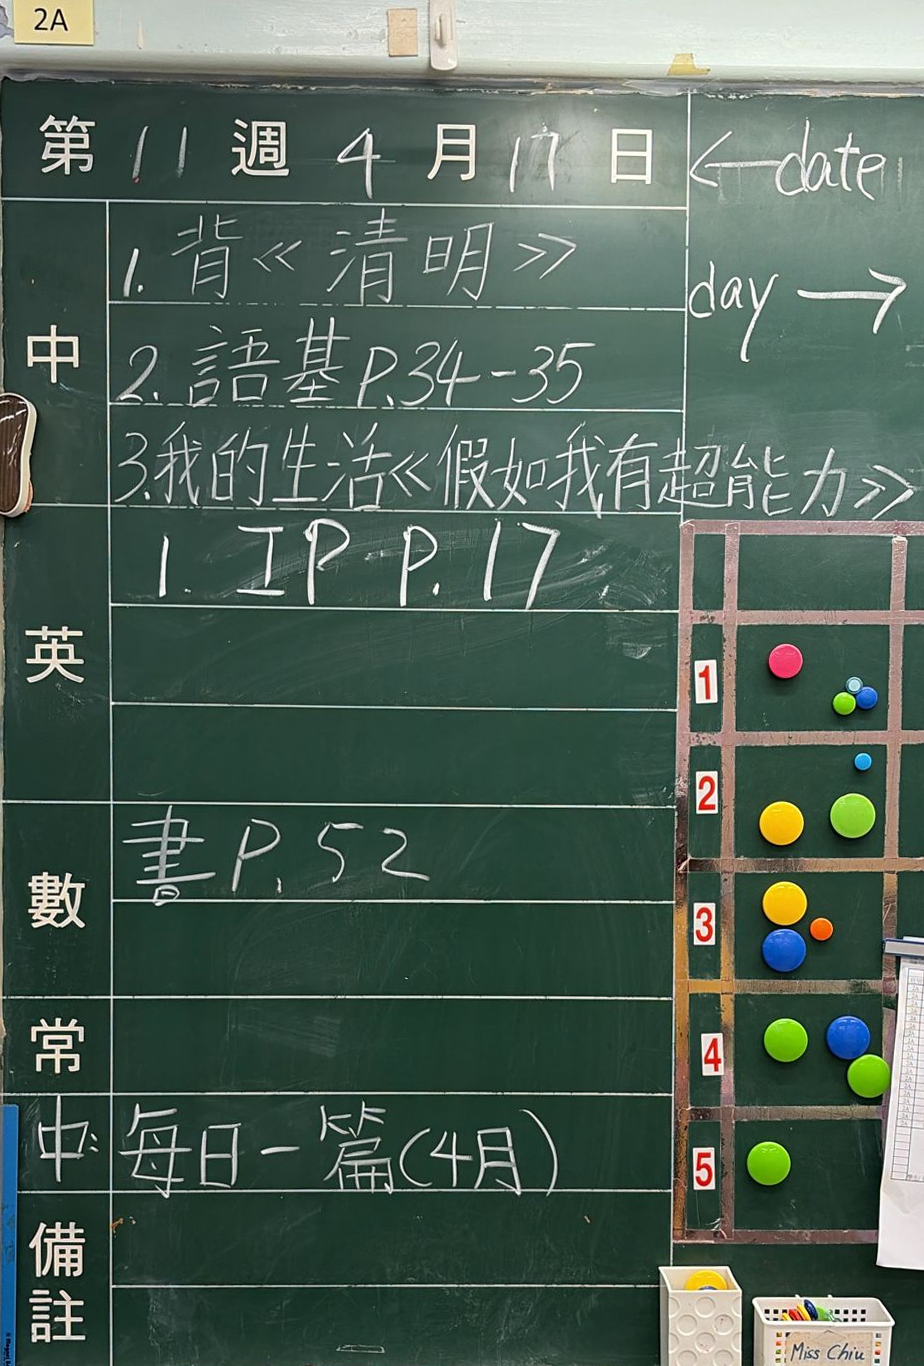 2A
第 11 週 4 月 17 日
←date
day →
中
1. 背《清明》
2. 語基 P.34-35
3.我的生活《假如我有超能力》
英
1. IP P.17
數
書 P.52
常
中: 每日一篇(4月)
備註
1
2
3
4
5
Miss Chiu